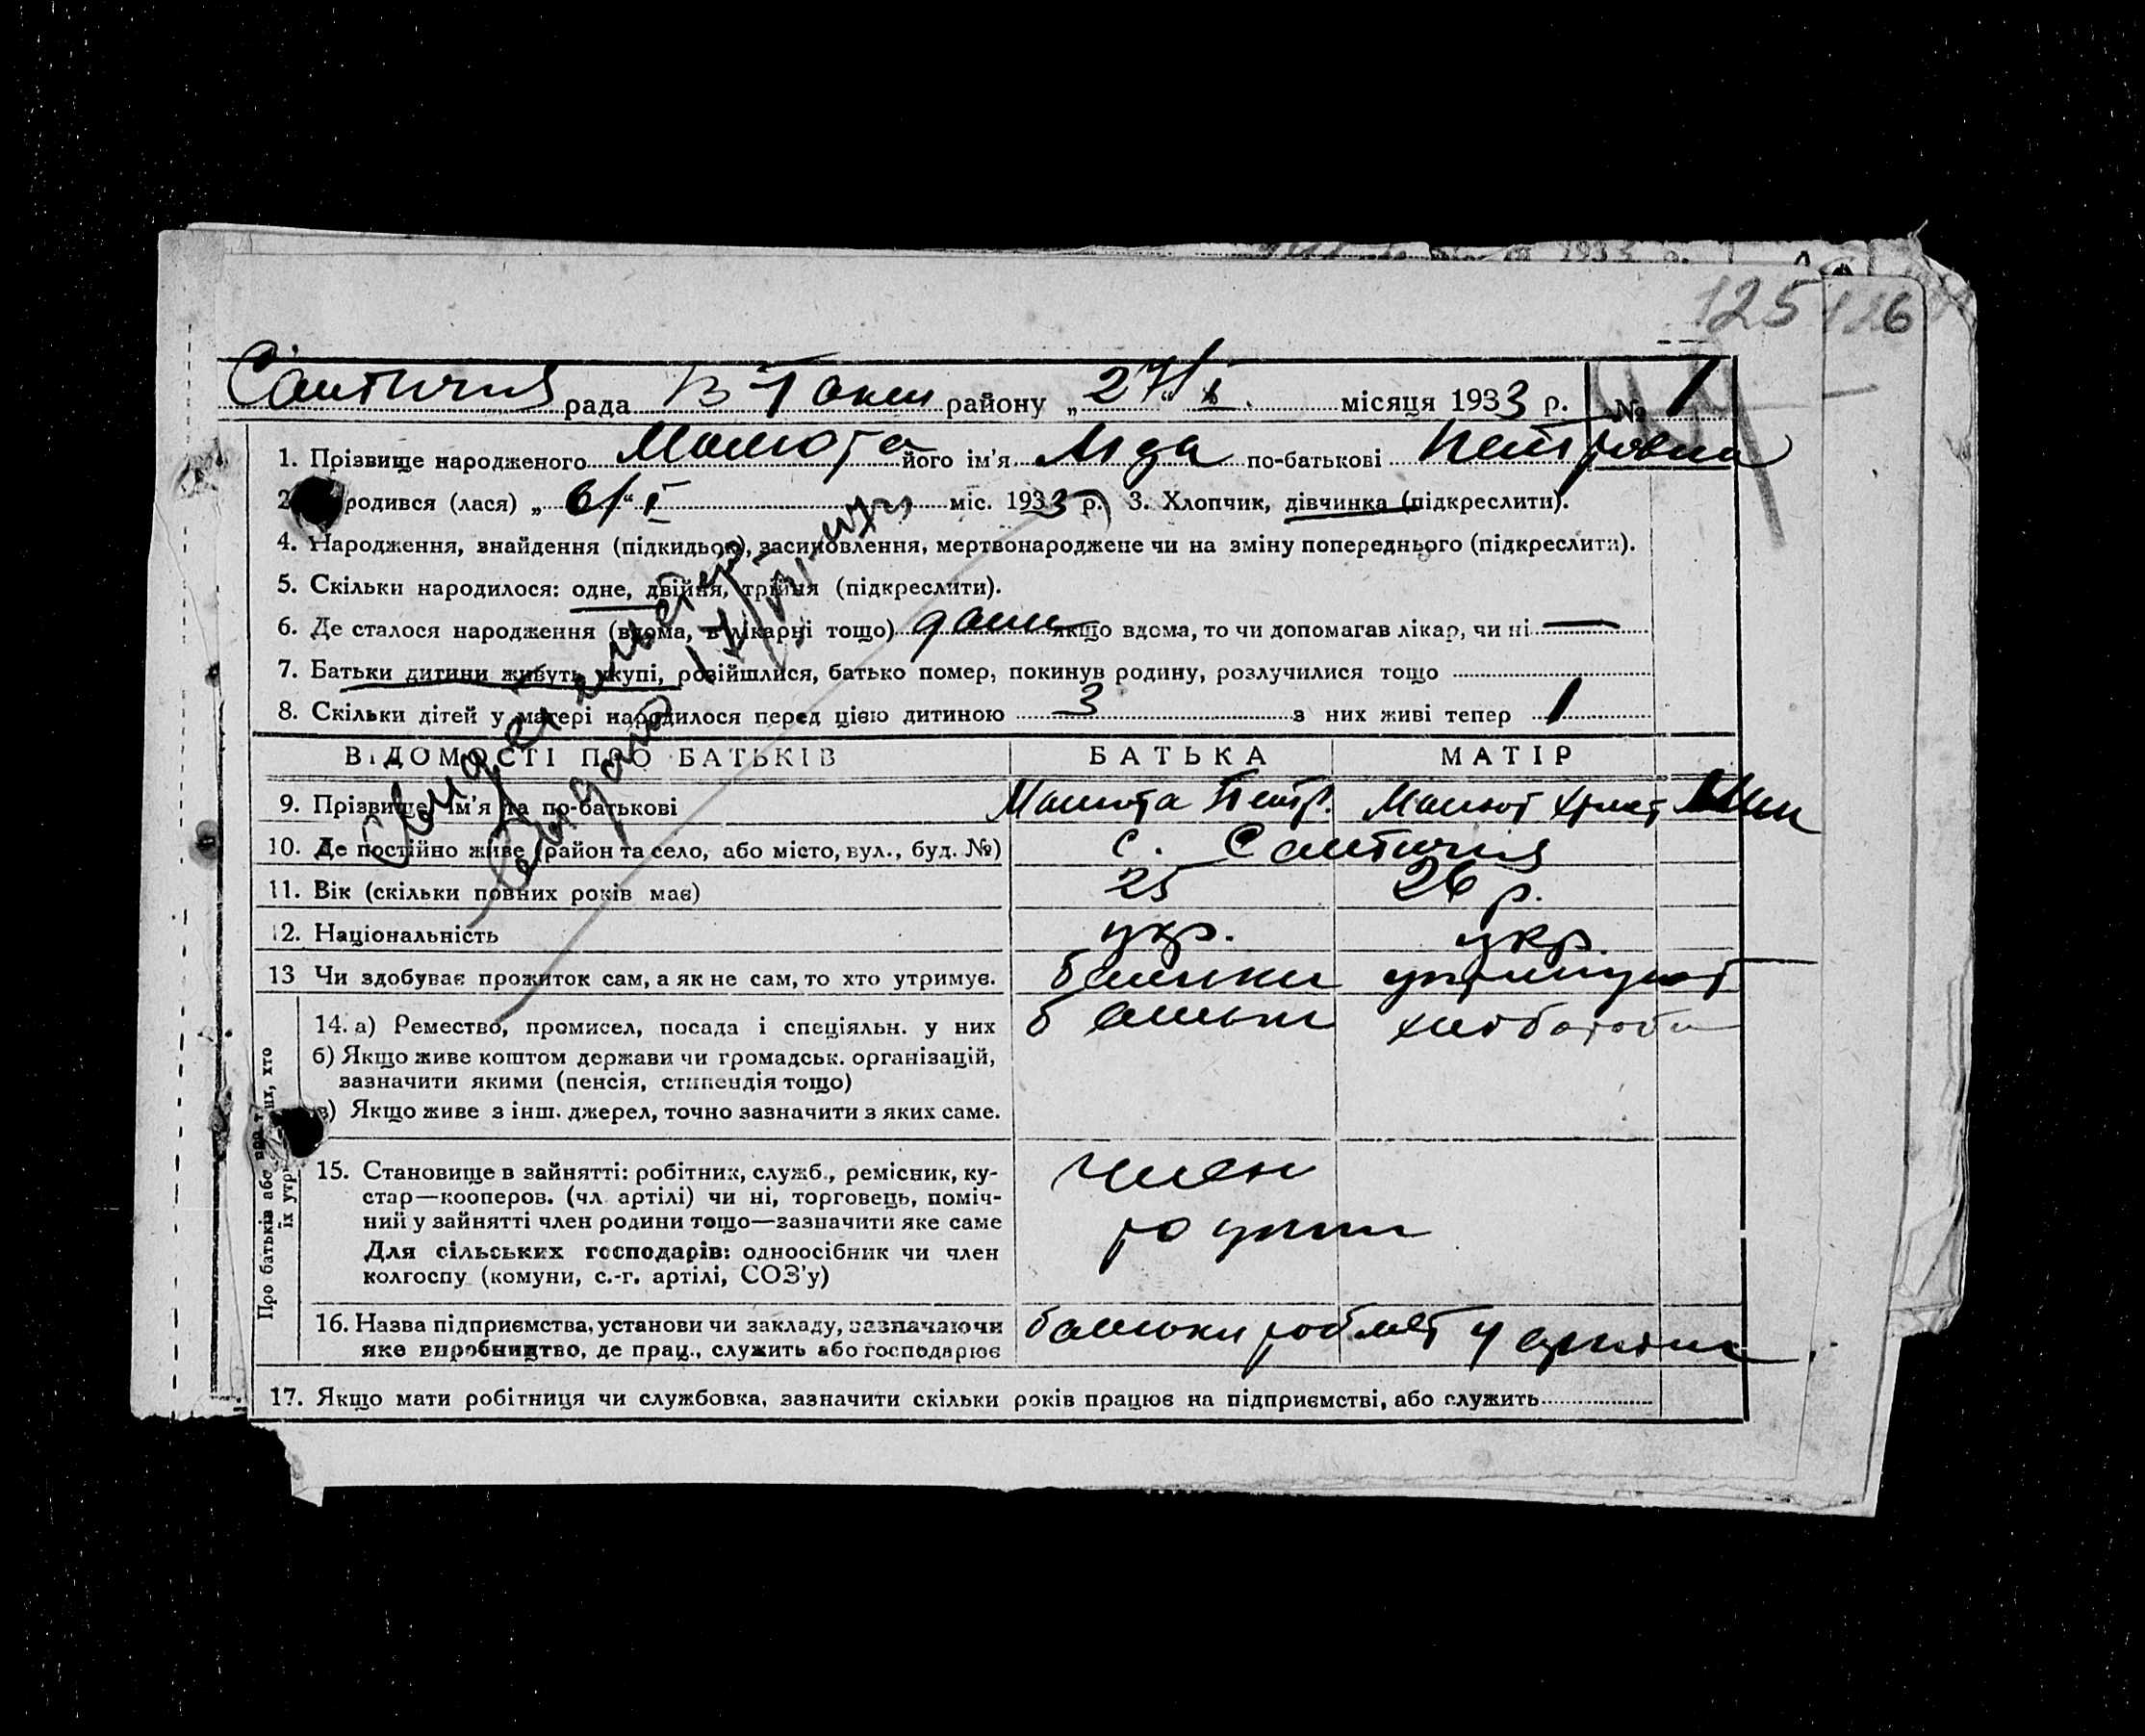 125 126
рада В Токм району „27/І“ місяця 1933 р. № 1
1. Прізвище народженого його ім'я Ліда по-батькові Петровна
2. родився (лася) „6/“ І міс. 1933 р. 3. Хлопчик, дівчинка (підкреслити).
4. Народження, знайдення (підкидьок), засиновлення, мертвонароджене чи на зміну попереднього (підкреслити).
5. Скільки народилося: одне, двійня, трійня (підкреслити).
6. Де сталося народження (вдома, в лікарні тощо) дома якщо вдома, то чи допомагав лікар, чи ні —
7. Батьки дитини живуть укупі, розійшлися, батько помер, покинув родину, розлучилися тощо
8. Скільки дітей у матері народилося перед цією дитиною 3 з них живі тепер 1
ВІДОМОСТІ ПРО БАТЬКІВ БАТЬКА МАТІР
9. Прізвище, ім'я та по-батькові
10. Де постійно живе (район та село, або місто, вул., буд. №) с.
11. Вік (скільки повних років має) 25 26 р.
12. Національність укр. укр.
13 Чи здобуває прожиток сам, а як не сам, то хто утримує. батьки утримують
Про батьків або про тих, хто їх утр
14. а) Ремество, промисел, посада і спеціяльн. у них батьки хлібороби
б) Якщо живе коштом держави чи громадськ. організацій,
зазначити якими (пенсія, стипендія тощо)
в) Якщо живе з інш. джерел, точно зазначити з яких саме.
15. Становище в зайнятті: робітник, служб., ремісник, ку-
стар—кооперов. (чл артілі) чи ні, торговець, поміч- член
ний у зайнятті член родини тощо—зазначити яке саме родини
Для сільських господарів: одноосібник чи член
колгоспу (комуни, с.-г. артілі, СОЗ'у)
16. Назва підприємства, установи чи закладу, зазначаючи батьки роблять у артілі
яке виробництво, де прац., служить або господарює
17. Якщо мати робітниця чи службовка, зазначити скільки років працює на підприємстві, або служить